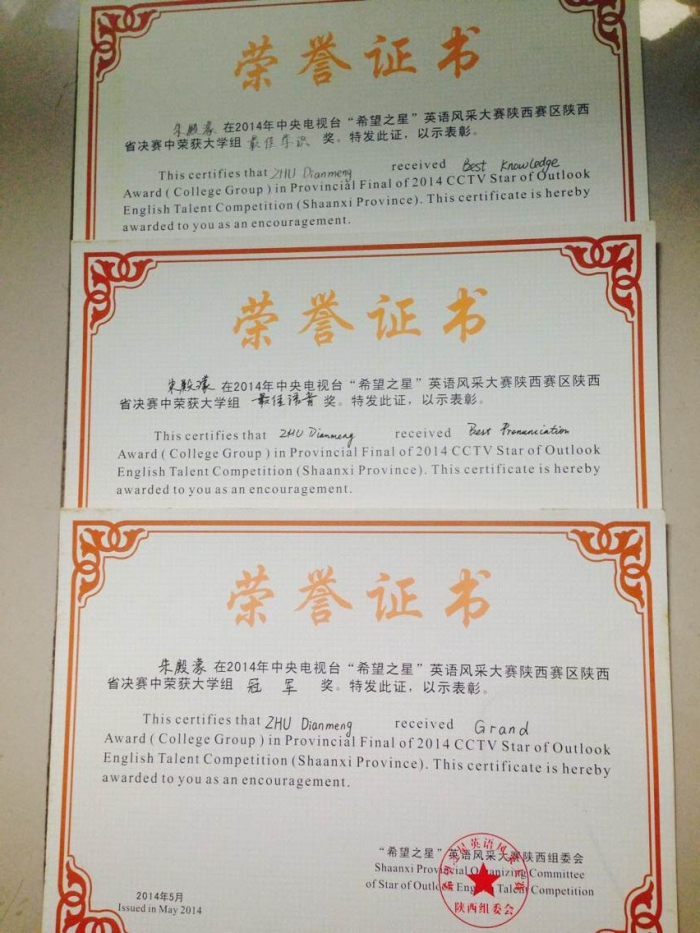 荣誉证书
朱殿濛 在2014年中央电视台“希望之星”英语风采大赛陕西赛区陕西
省决赛中荣获大学组 最佳学识 奖。特发此证，以示表彰。
This certifies that ZHU Dianmeng received Best Knowledge
Award ( College Group ) in Provincial Final of 2014 CCTV Star of Outlook
English Talent Competition (Shaanxi Province). This certificate is hereby
awarded to you as an encouragement.
荣誉证书
朱殿濛 在2014年中央电视台“希望之星”英语风采大赛陕西赛区陕西
省决赛中荣获大学组 最佳语音 奖。特发此证，以示表彰。
This certifies that ZHU Dianmeng received Best Pronunciation
Award ( College Group ) in Provincial Final of 2014 CCTV Star of Outlook
English Talent Competition (Shaanxi Province). This certificate is hereby
awarded to you as an encouragement.
荣誉证书
朱殿濛 在2014年中央电视台“希望之星”英语风采大赛陕西赛区陕西
省决赛中荣获大学组 冠军 奖。特发此证，以示表彰。
This certifies that ZHU Dianmeng received Grand
Award ( College Group ) in Provincial Final of 2014 CCTV Star of Outlook
English Talent Competition (Shaanxi Province). This certificate is hereby
awarded to you as an encouragement.
“希望之星”英语风采大赛陕西组委会
Shaanxi Provincial Organizing Committee
of Star of Outlook English Talent Competition
陕西组委会
2014年5月
Issued in May 2014